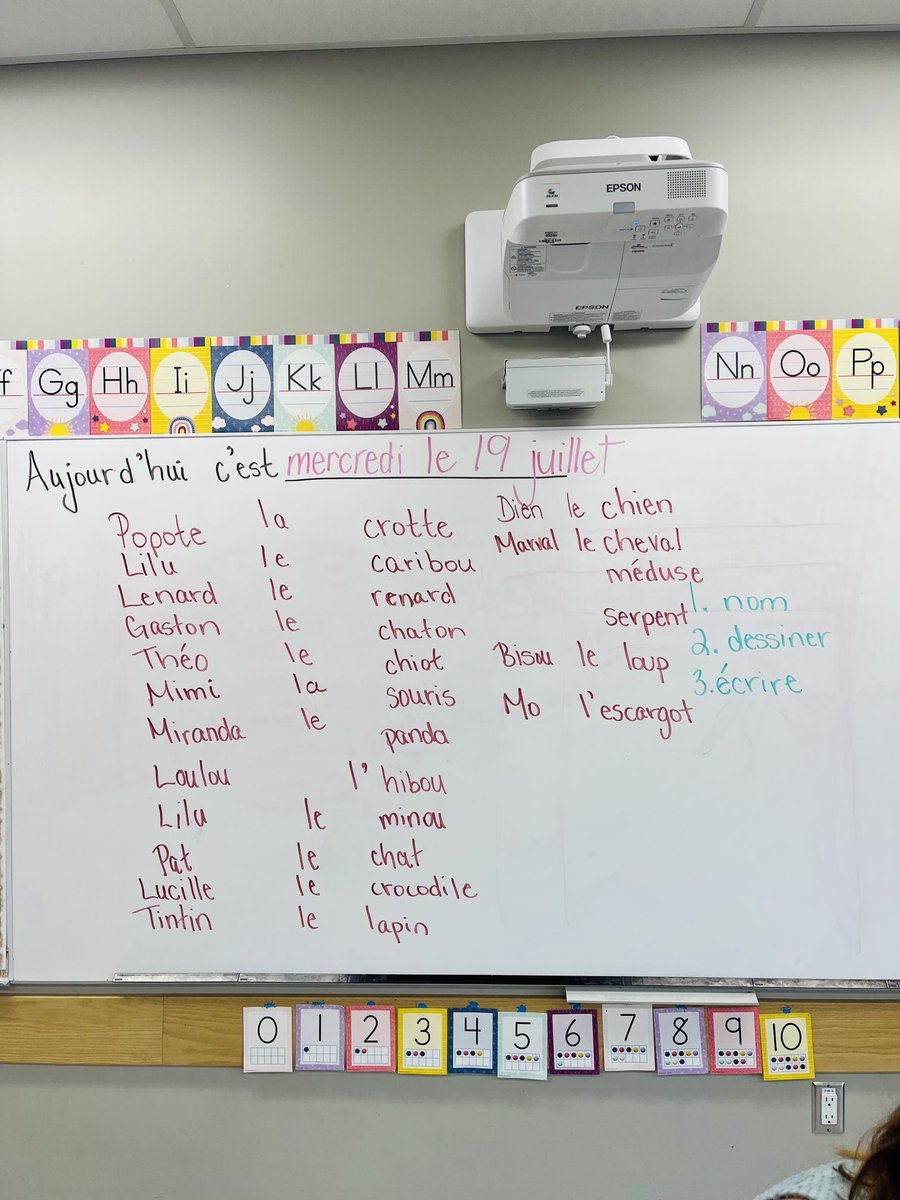 EPSON
EPSON
f Gg Hh Ii Jj Kk Ll Mm
Nn Oo Pp
Aujourd'hui c'est mercredi le 19 juillet
Popote la crotte
Lilu le caribou
Lenard le renard
Gaston le chaton
Théo le chiot
Mimi la souris
Miranda le panda
Loulou l'hibou
Lilu le minou
Pat le chat
Lucille le crocodile
Tintin le lapin
Dien le chien
Marval le cheval
méduse
serpent
Bisou le loup
Mo l'escargot
1. nom
2. dessiner
3. écrire
0 1 2 3 4 5 6 7 8 9 10